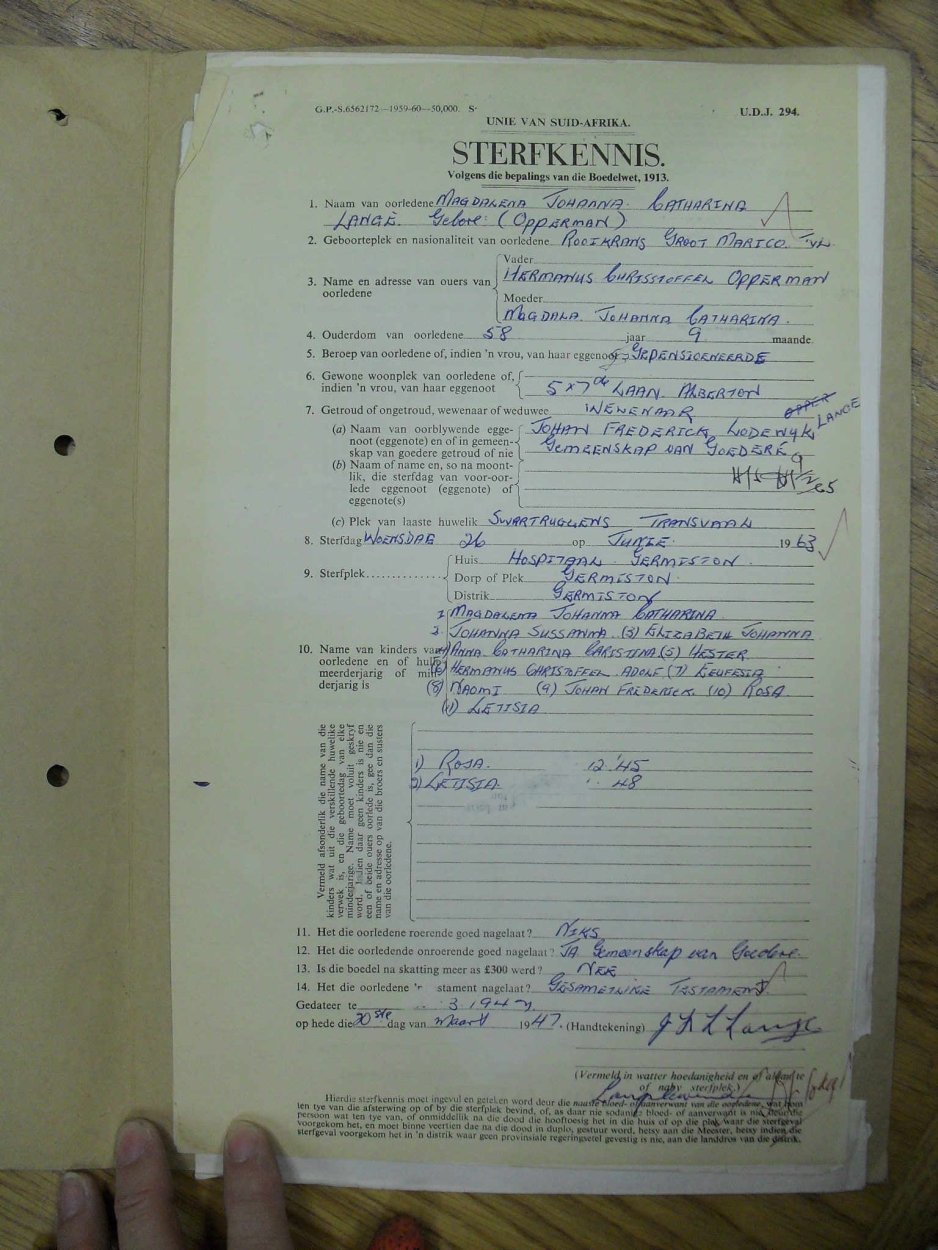 G.P.-S.6562172—1959-60—50,000. S
U.D.J. 294.
UNIE VAN SUID-AFRIKA.
STERFKENNIS.
Volgens die bepalings van die Boedelwet, 1913.
1. Naam van oorledene MAGDALENA JOHANNA CATHARINA
LANGE Gebore (OPPERMAN)
2. Geboorteplek en nasionaliteit van oorledene ROOIKRANS GROOT MARICO. TVL.
3. Name en adresse van ouers van oorledene
Vader
HERMANUS CHRISSTOFFEL OPPERMAN
Moeder
MAGDALA JOHANNA CATHARINA.
4. Ouderdom van oorledene 58 jaar 9 maande
5. Beroep van oorledene of, indien 'n vrou, van haar eggenoot GEPENSIOENEERDE
6. Gewone woonplek van oorledene of, indien 'n vrou, van haar eggenoot
5 x 7de LAAN ALBERTON
7. Getroud of ongetroud, wewenaar of weduwee WEWENAAR
OPPER LANGE
(a) Naam van oorblywende eggenoot (eggenote) en of in gemeenskap van goedere getroud of nie
JOHAN FREDERICK LODEWYK
GEMEENSKAP VAN GOEDERE
(b) Naam of name en, so na moontlik, die sterfdag van voor-oorlede eggenoot (eggenote) of eggenote(s)
(c) Plek van laaste huwelik SWARTRUGGENS TRANSVAAL
8. Sterfdag WOENSDAG 26 op JUNIE 1963
9. Sterfplek
Huis HOSPITAAL GERMISTON
Dorp of Plek GERMISTON
Distrik GERMISTON
10. Name van kinders van oorledene en of hulle meerderjarig of minderjarig is
1 MAGDALENA JOHANNA CATHARINA
2. JOHANNA SUSSANNA (3) ELIZABETH JOHANNA
(4) ANNA CATHARINA CHRISTINA (5) HESTER
(6) HERMANUS CHRISTOFFEL ADOLF (7) EEUFESIA
(8) NAOMI (9) JOHAN FREDERICK (10) ROSA
(11) LETISIA
Vermeld afsonderlik die name van die kinders wat uit die verskillende huwelike verwek is, en die geboortedag van elke minderjarige. Name moet voluit geskryf word. Indien daar geen kinders is nie en een of beide ouers oorlede is, gee dan die name en adresse op van die broers en susters van die oorledene.
1) ROSA. 12.'45
2) LETISIA. '48
11. Het die oorledene roerende goed nagelaat? NIKS
12. Het die oorledende onroerende goed nagelaat? JA Gemeenskap van Goedere.
13. Is die boedel na skatting meer as £300 werd? NEE
14. Het die oorledene 'n stament nagelaat? GESAMENLIKE TESTAMENT
Gedateer te 3 1947
op hede die 30ste dag van Maart 1947. (Handtekening) J F L Lange
(Vermeld in watter hoedanigheid en of al dan te of naby sterfplek.)
Hierdie sterfkennis moet ingevul en geteken word deur die naaste bloed- of aanverwant van die oorledene, wat ten tye van die afsterwing op of by die sterfplek bevind, of, as daar nie sodanige bloed- of aanverwant is nie, deur die
persoon wat ten tye van, of onmiddellik na die dood die hooftoesig het in die huis of op die plek waar die sterfgeval
voorgekom het, en moet binne veertien dae na die dood in duplo, gestuur word, hetsy aan die Meester, hetsy indien die
sterfgeval voorgekom het in 'n distrik waar geen provinsiale regeringsetel gevestig is nie, aan die landdros van die distrik.